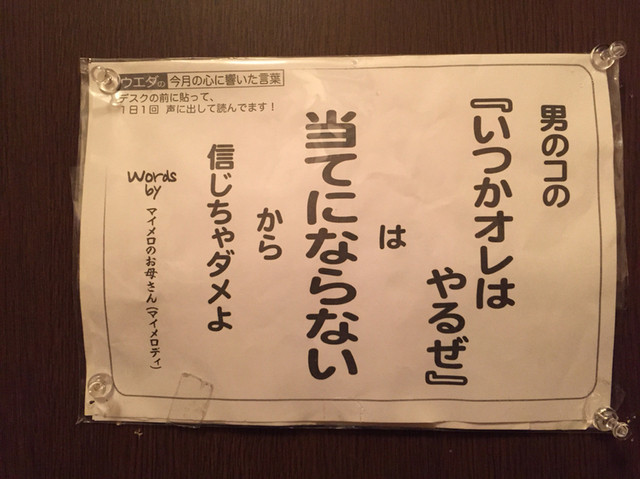 ウエダの 今月の心に響いた言葉
デスクの前に貼って、
1日1回 声に出して読んでます！
男のコの
『いつかオレは
やるぜ』
は
当てにならない
から
信じちゃダメよ
words
by
マイメロのお母さん(マイメロディ)